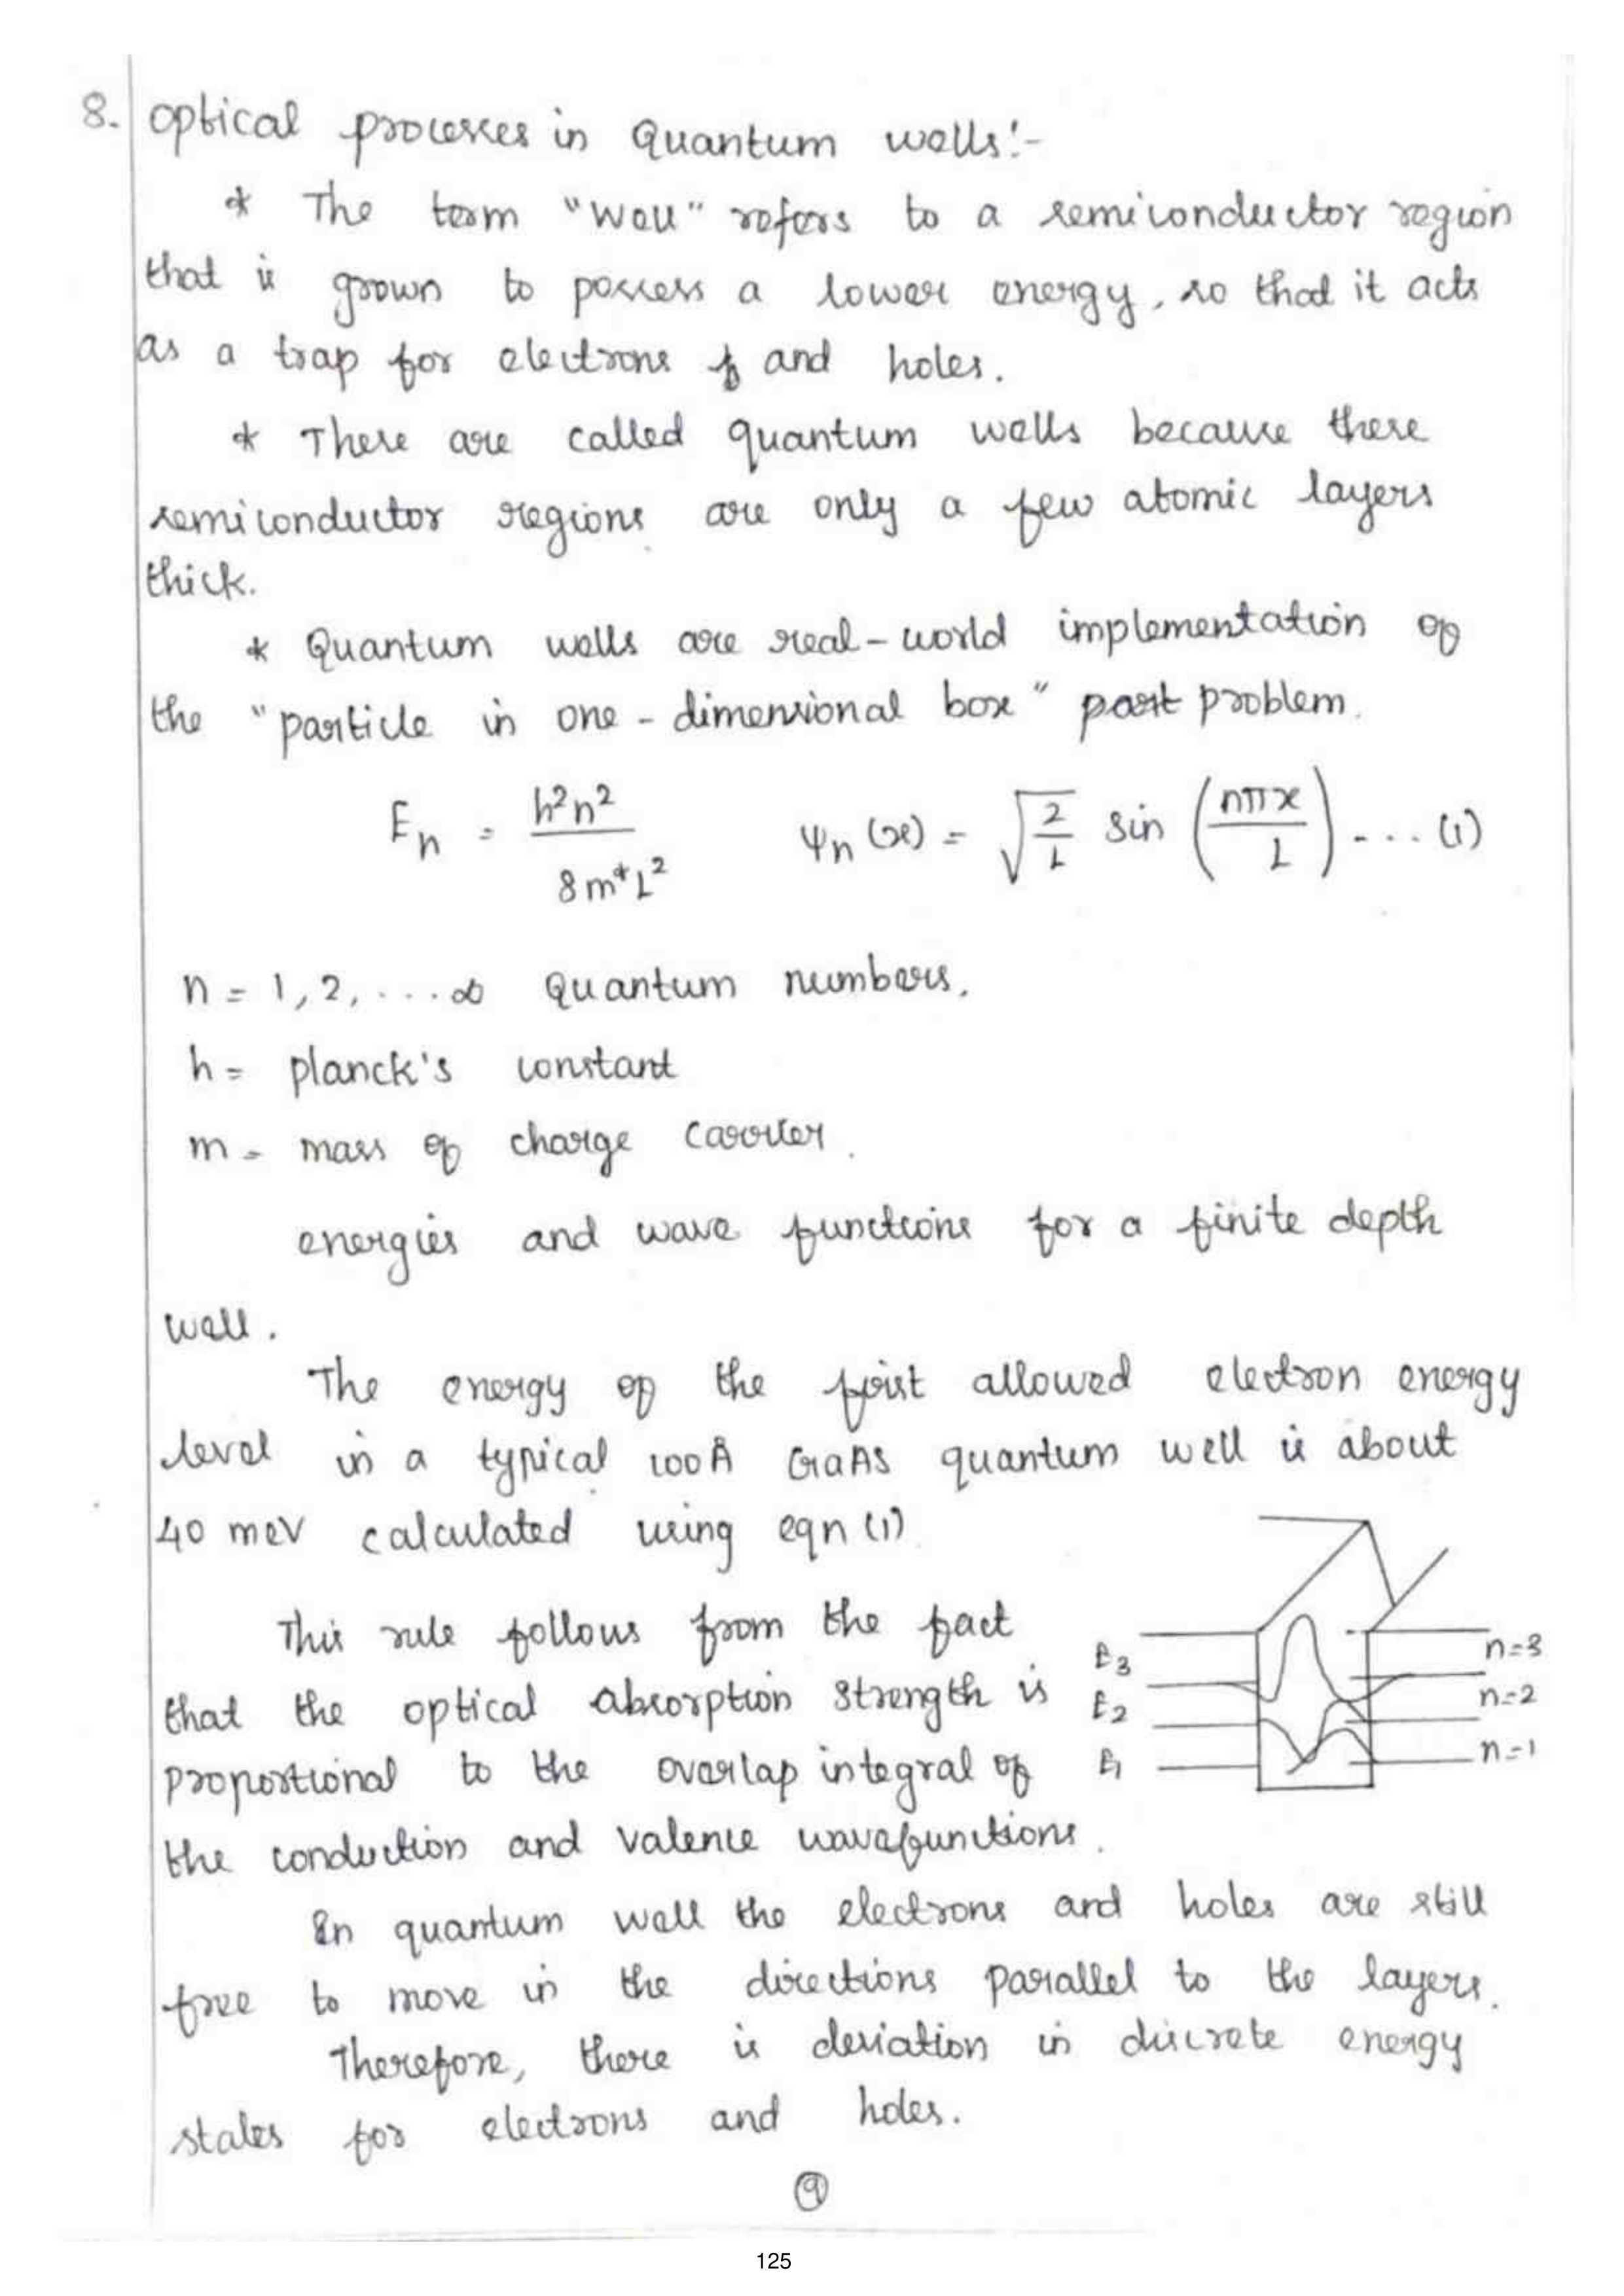 8. Optical processes in Quantum wells:-
* The term "well" refers to a semiconductor region
that is grown to possess a lower energy, so that it acts
as a trap for electrons and holes.
* These are called quantum wells because these
semiconductor regions are only a few atomic layers
thick.
* Quantum wells are real-world implementation of
the "particle in one-dimensional box" problem.
Eₙ = h²n² / 8m*L²    ψₙ(x) = √(2/L) sin (nπx/L) - ... (1)
n = 1, 2, ....∞ Quantum numbers.
h = planck's constant
m = mass of charge carrier.
energies and wave functions for a finite depth
well.
The energy of the first allowed electron energy
level in a typical 100Å GaAs quantum well is about
40 mev calculated using eqn (1)
This rule follows from the fact
that the optical absorption strength is
proportional to the overlap integral of
the conduction and valence wavefunctions.
E₃ n=3
E₂ n=2
E₁ n=1
In quantum well the electrons and holes are still
free to move in the directions parallel to the layers.
Therefore, there is deviation in discrete energy
states for electrons and holes.
9
125